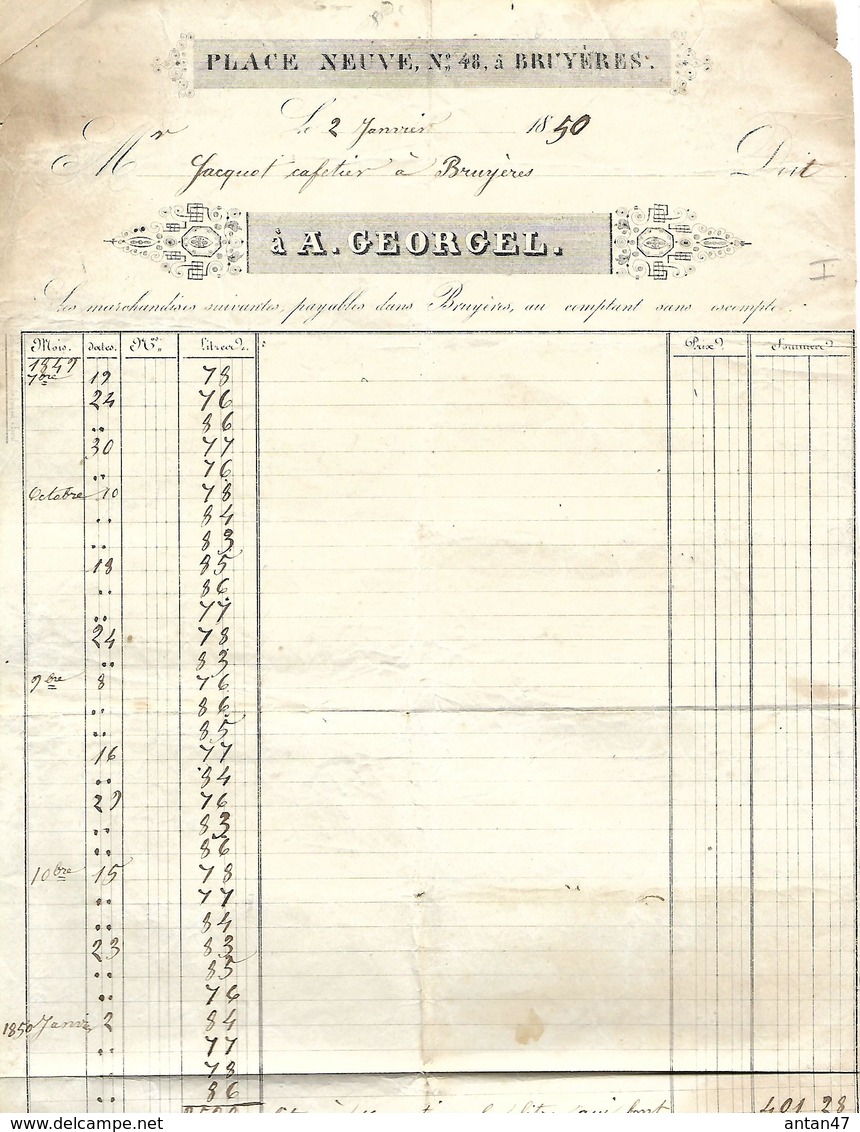 PLACE NEUVE, No. 48, à BRUYÈRES.
Le 2 Janvier 1850
Mr Jacquot cafetier à Bruyères Doit
à A. GEORGEL.
Les marchandises suivantes, payables dans Bruyères, au comptant sans escompte.
Mois. dates. Nos. Litres. Prix. Sommes.
1849
7bre 19 78
24 76
.. 86
30 77
.. 76
Octobre 10 78
.. 84
.. 83
18 85
.. 86
.. 77
24 78
.. 83
9bre 8 76
.. 86
.. 85
16 77
.. 84
29 76
.. 83
.. 86
10bre 15 78
.. 77
.. 84
23 83
.. 85
.. 76
1850 Janvier 2 84
.. 77
.. 78
.. 86
401 28
delcampe.net
antan47